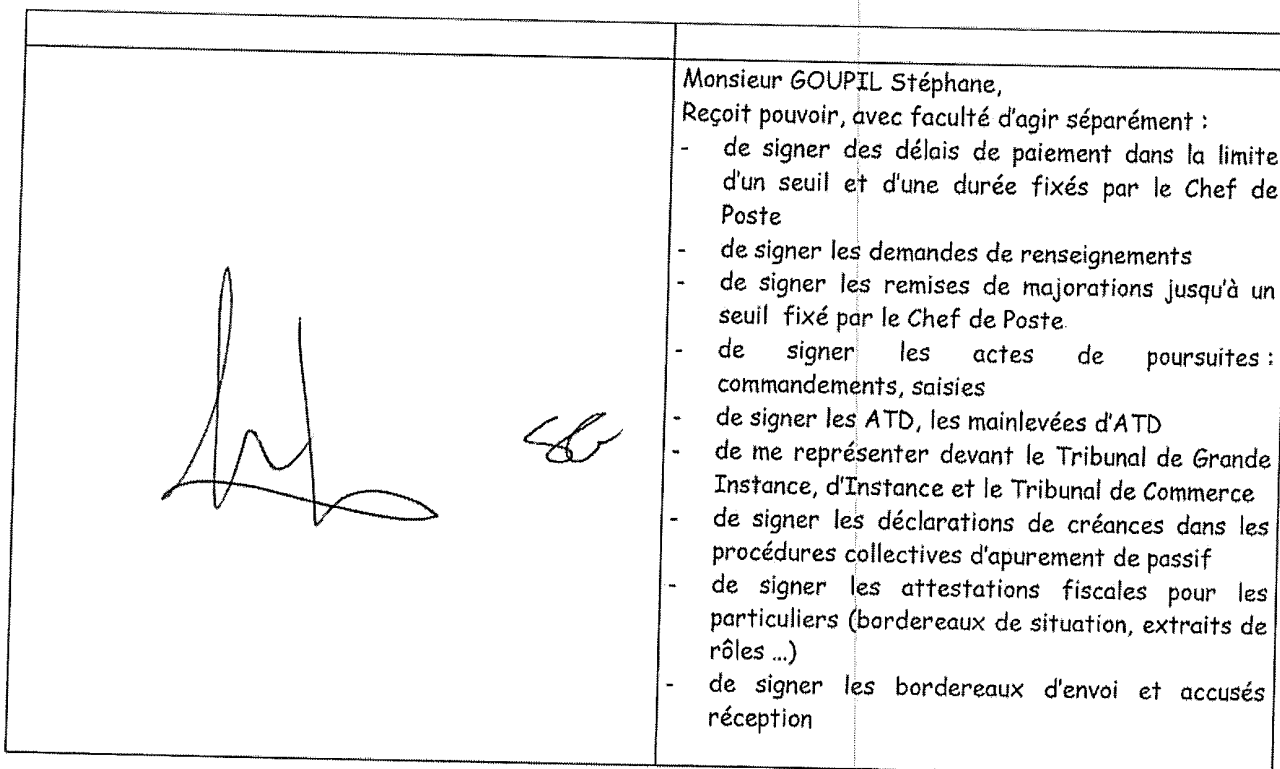 Monsieur GOUPIL Stéphane,
Reçoit pouvoir, avec faculté d'agir séparément :
- de signer des délais de paiement dans la limite
d'un seuil et d'une durée fixés par le Chef de
Poste
- de signer les demandes de renseignements
- de signer les remises de majorations jusqu'à un
seuil fixé par le Chef de Poste.
- de signer les actes de poursuites :
commandements, saisies
- de signer les ATD, les mainlevées d'ATD
- de me représenter devant le Tribunal de Grande
Instance, d'Instance et le Tribunal de Commerce
- de signer les déclarations de créances dans les
procédures collectives d'apurement de passif
- de signer les attestations fiscales pour les
particuliers (bordereaux de situation, extraits de
rôles ...)
- de signer les bordereaux d'envoi et accusés
réception